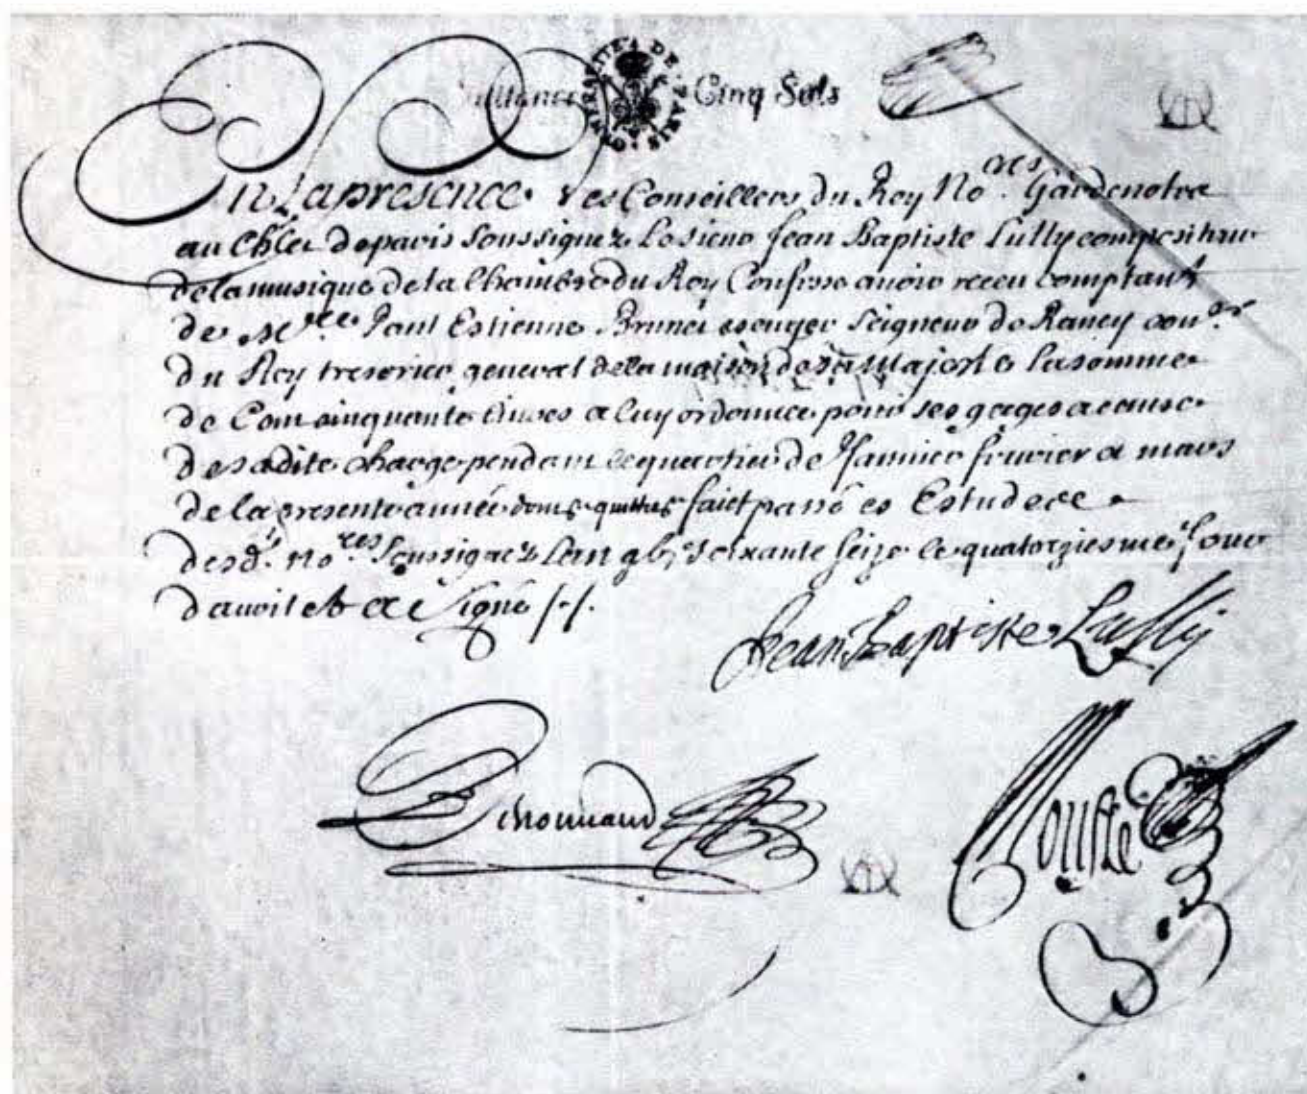 Quittance Cinq Sols
GENERALITE DE PARIS
En La presence des Conseillers du Roy No.res Gardenotte
au Ch.let deparis soussignez Lesieur Jean Baptiste Lully compositeur
delamusique dela Chambre du Roy Confesse avoir receu comptant
de Me.re Paul Estienne Brunet escuyer Seigneur de Rancy con.er
du Roy tresorier general dela maison de sa Majesté lasomme
de Cent cinquante livres a luy ordonnée pour ses gages acause
desadite charge pendant lequartier de Janvier fevrier et mars
dela presente année dont quitte faict passé es Estude
desd. No.res soussignez Lan gbj soixante seize le quatorziesme Jour
davril et a Signé
Jean Baptiste Lully